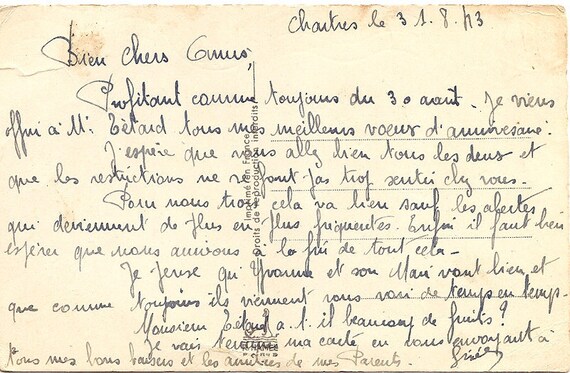 Chartres le 31.8.43
Bien chers Amis,
Profitant comme toujours du 30 août. Je viens
offrir à Mr Tétard tous mes meilleurs voeux d'anniversaire.
J'espère que vous allez bien tous les deux et
que les restrictions ne se font pas trop sentir chez vous.
Pour nous trois cela va bien sauf les alertes
qui deviennent de plus en plus fréquentes. Enfin il faut bien
espérer que nous aurions la fin de tout cela.
Je pense qu'Yvonne et son Mari vont bien et
que comme toujours ils viennent vous voir de temps en temps.
Monsieur Tétard a.t.il beaucoup de fruits?
Je vais ma carte en vous envoyant à
tous mes bons baisers et les amitiés de mes Parents.
Imprimé en France
Droits de reproduction interdits